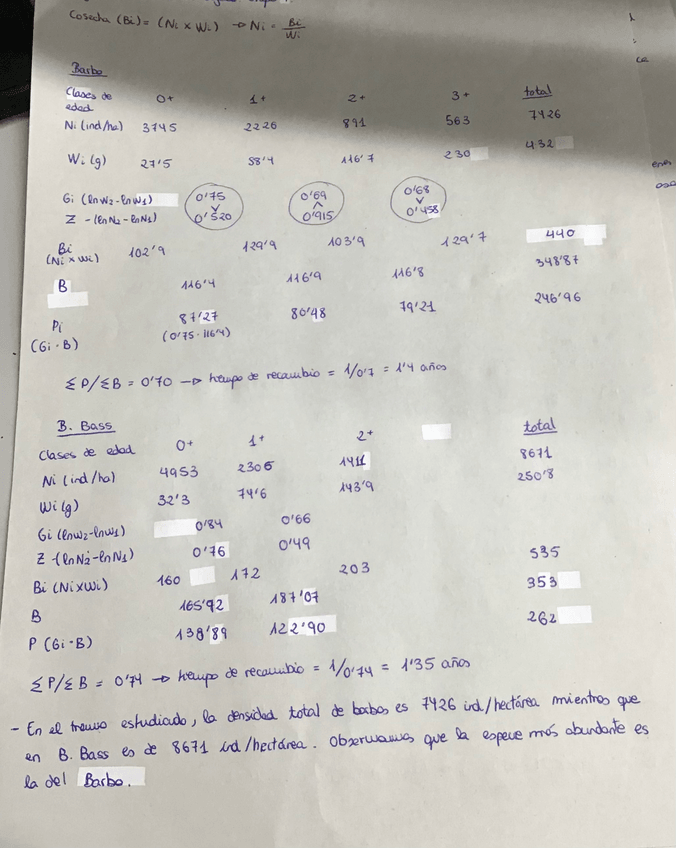 Cosecha (Bi) = (Ni x Wi) → Ni = Bi/Wi
Barbo
Clases de edad 0+ 1+ 2+ 3+ total
Ni (ind/ha) 3745 2226 891 563 7426
Wi (g) 27'5 58'4 116'7 230 432
Gi (lnW2-lnW1) 0'75 0'69 0'68
v ^ v
Z -(lnN2-lnN1) 0'520 0'915 0'458
Bi (Ni x Wi) 102'9 129'9 103'9 129'7 440
B 116'4 116'9 116'8 348'87
Pi (Gi·B) 87'27 80'48 79'21 246'96
(0'75·116'4)
ΣP/ΣB = 0'70 → tiempo de recambio = 1/0'7 = 1'4 años
B. Bass
Clases de edad 0+ 1+ 2+ total
Ni (ind/ha) 4953 2306 1411 8671
Wi (g) 32'3 74'6 143'9 250'8
Gi (lnW2-lnW1) 0'84 0'66
Z -(lnN2-lnN1) 0'76 0'49
Bi (NixWi) 160 172 203 535
B 165'92 187'07 353
P (Gi·B) 138'89 122'90 262
ΣP/ΣB = 0'74 → tiempo de recambio = 1/0'74 = 1'35 años
- En el tramo estudiado, la densidad total de barbos es 7426 ind./hectárea mientras que
en B. Bass es de 8671 ind/hectárea. Observamos que la especie más abundante es
la del Barbo.